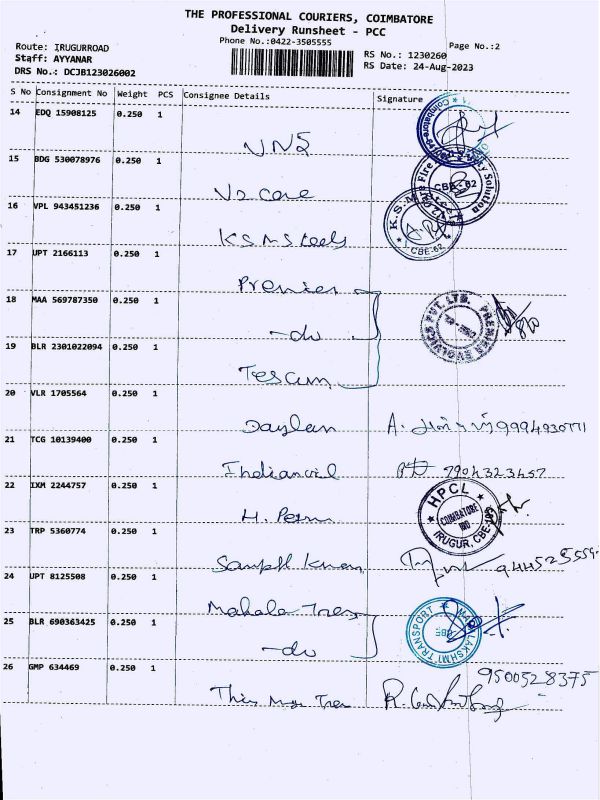 THE PROFESSIONAL COURIERS, COIMBATORE
Delivery Runsheet - PCC
Phone No.:0422-3505555
Page No.:2
Route: IRUGURROAD
Staff: AYYANAR
DRS No.: DCJB123026002
RS No.: 1230260
RS Date: 24-Aug-2023
S No Consignment No Weight PCS Consignee Details Signature
14 EDQ 15908125 0.250 1
VNS
15 BDG 530078976 0.250 1
V2 Care
CBE-62
16 VPL 943451236 0.250 1
KSM Steels
K.S.M
CBE-62
17 UPT 2166113 0.250 1
Premier
18 MAA 569787350 0.250 1
-do
PREMIER EVOLVICS PVT. LTD.
19 BLR 2301022094 0.250 1
Tescum
20 VLR 1705564 0.250 1
Daylan A. 9994930771
21 TCG 10139400 0.250 1
Indianoil 7904323457
22 IXM 2244757 0.250 1
H. Petro
HPCL
COIMBATORE
IRUGUR, CBE-103
23 TRP 5360774 0.250 1
24 UPT 8125508 0.250 1
25 BLR 690363425 0.250 1
-do
MAHALAKSHMI TRANSPORT
CBE
26 GMP 634469 0.250 1
9500528375